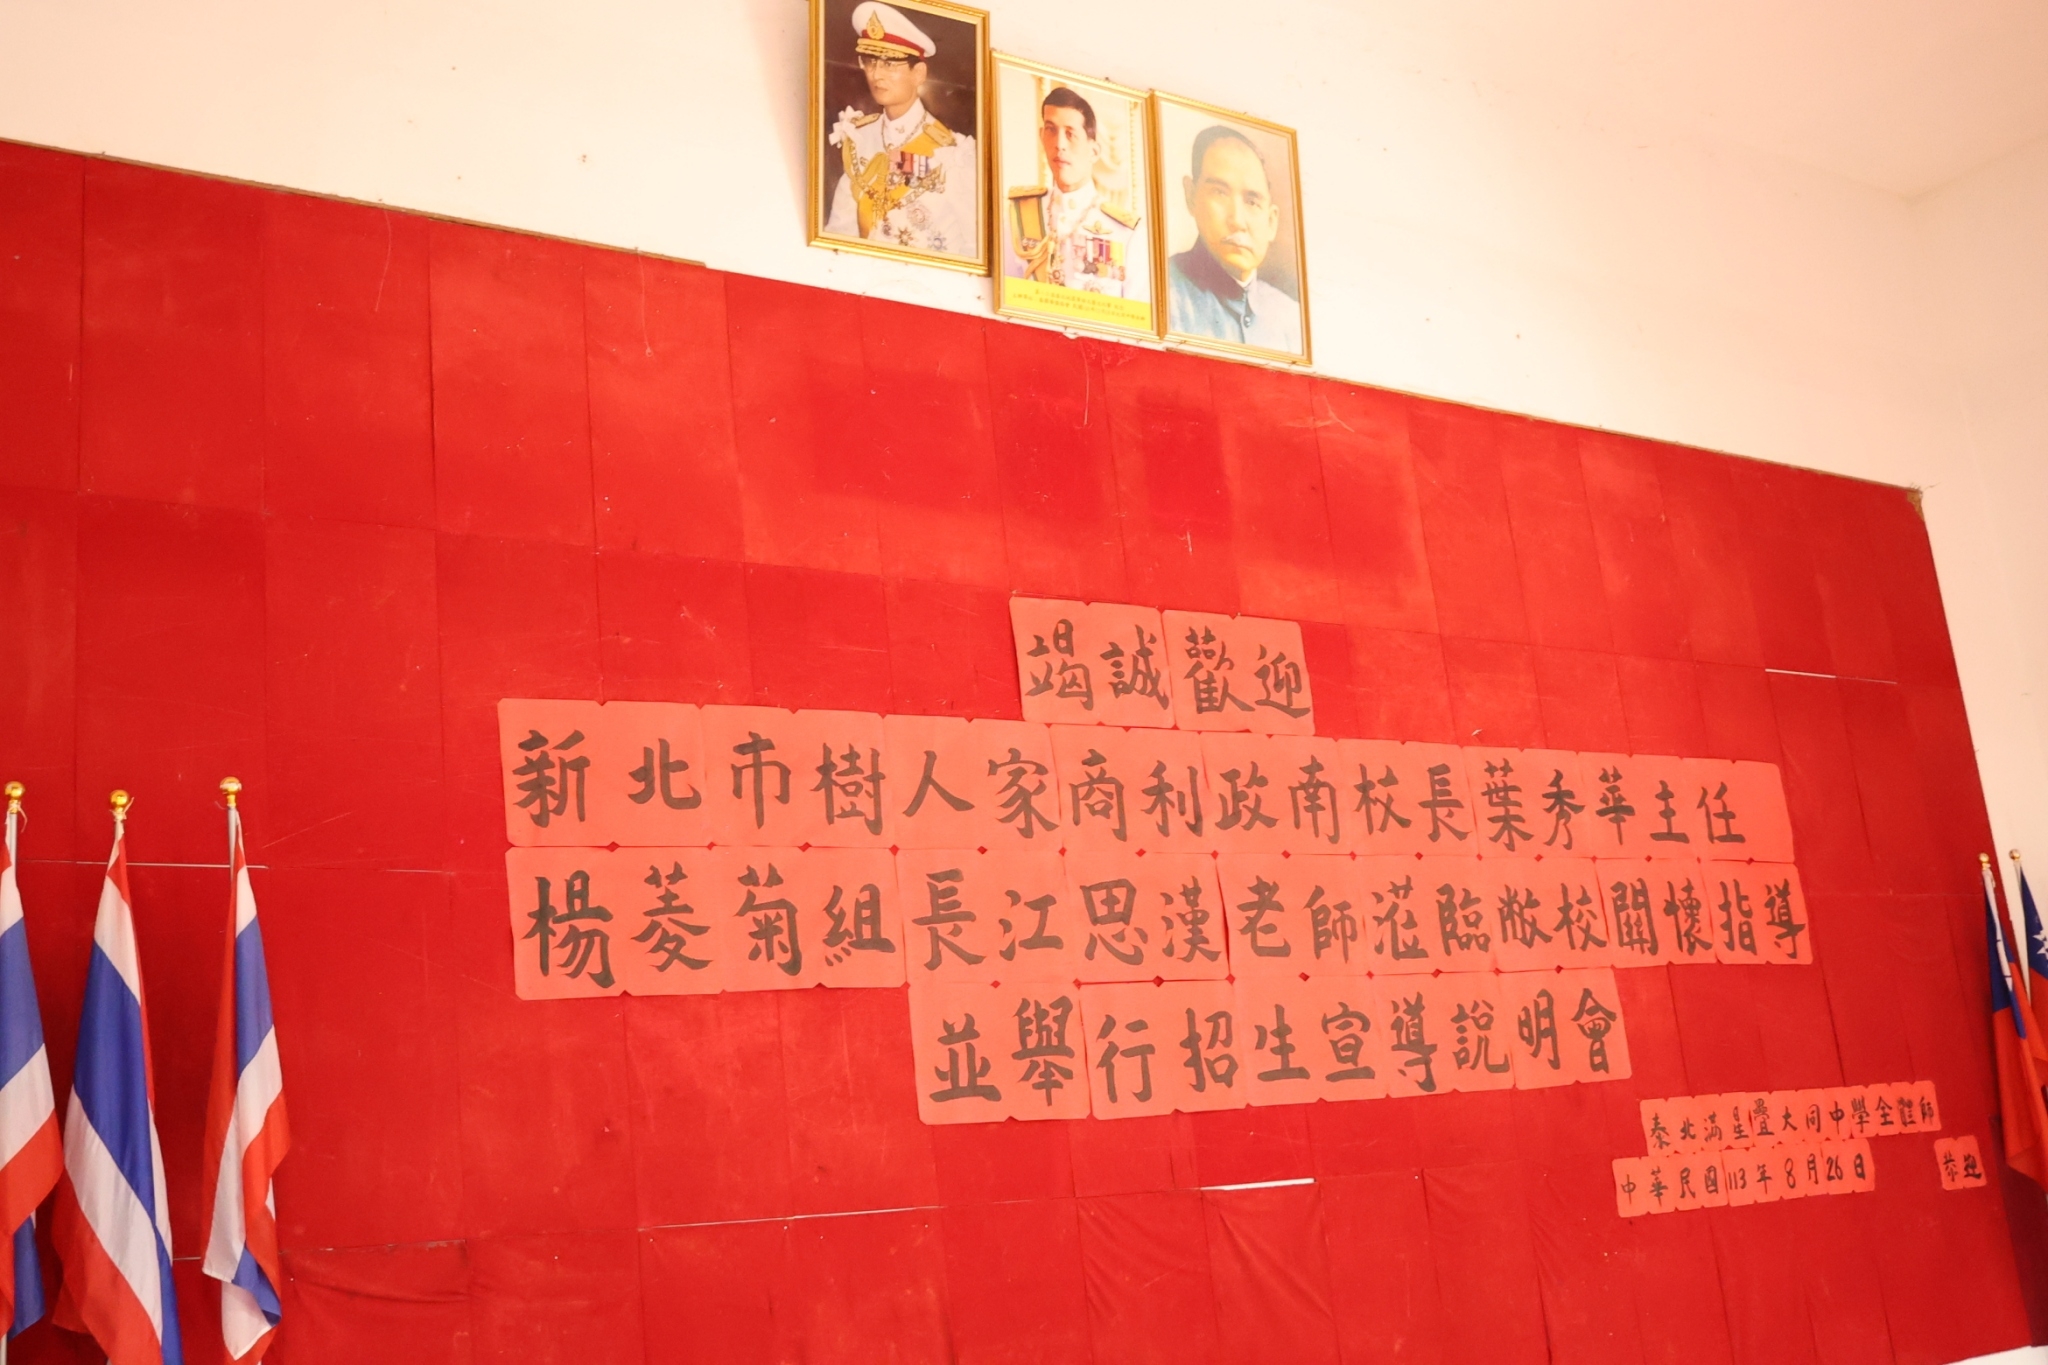 竭誠歡迎
新北市樹人家商利政南校長葉秀華主任
楊菱菊組長江思漢老師蒞臨敝校關懷指導
並舉行招生宣導說明會
泰北滿星疊大同中學全體師
中華民國113年8月26日 恭迎